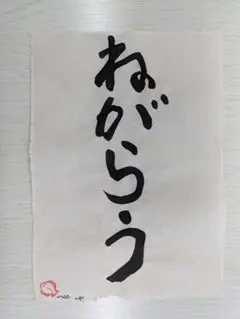 ねがらう